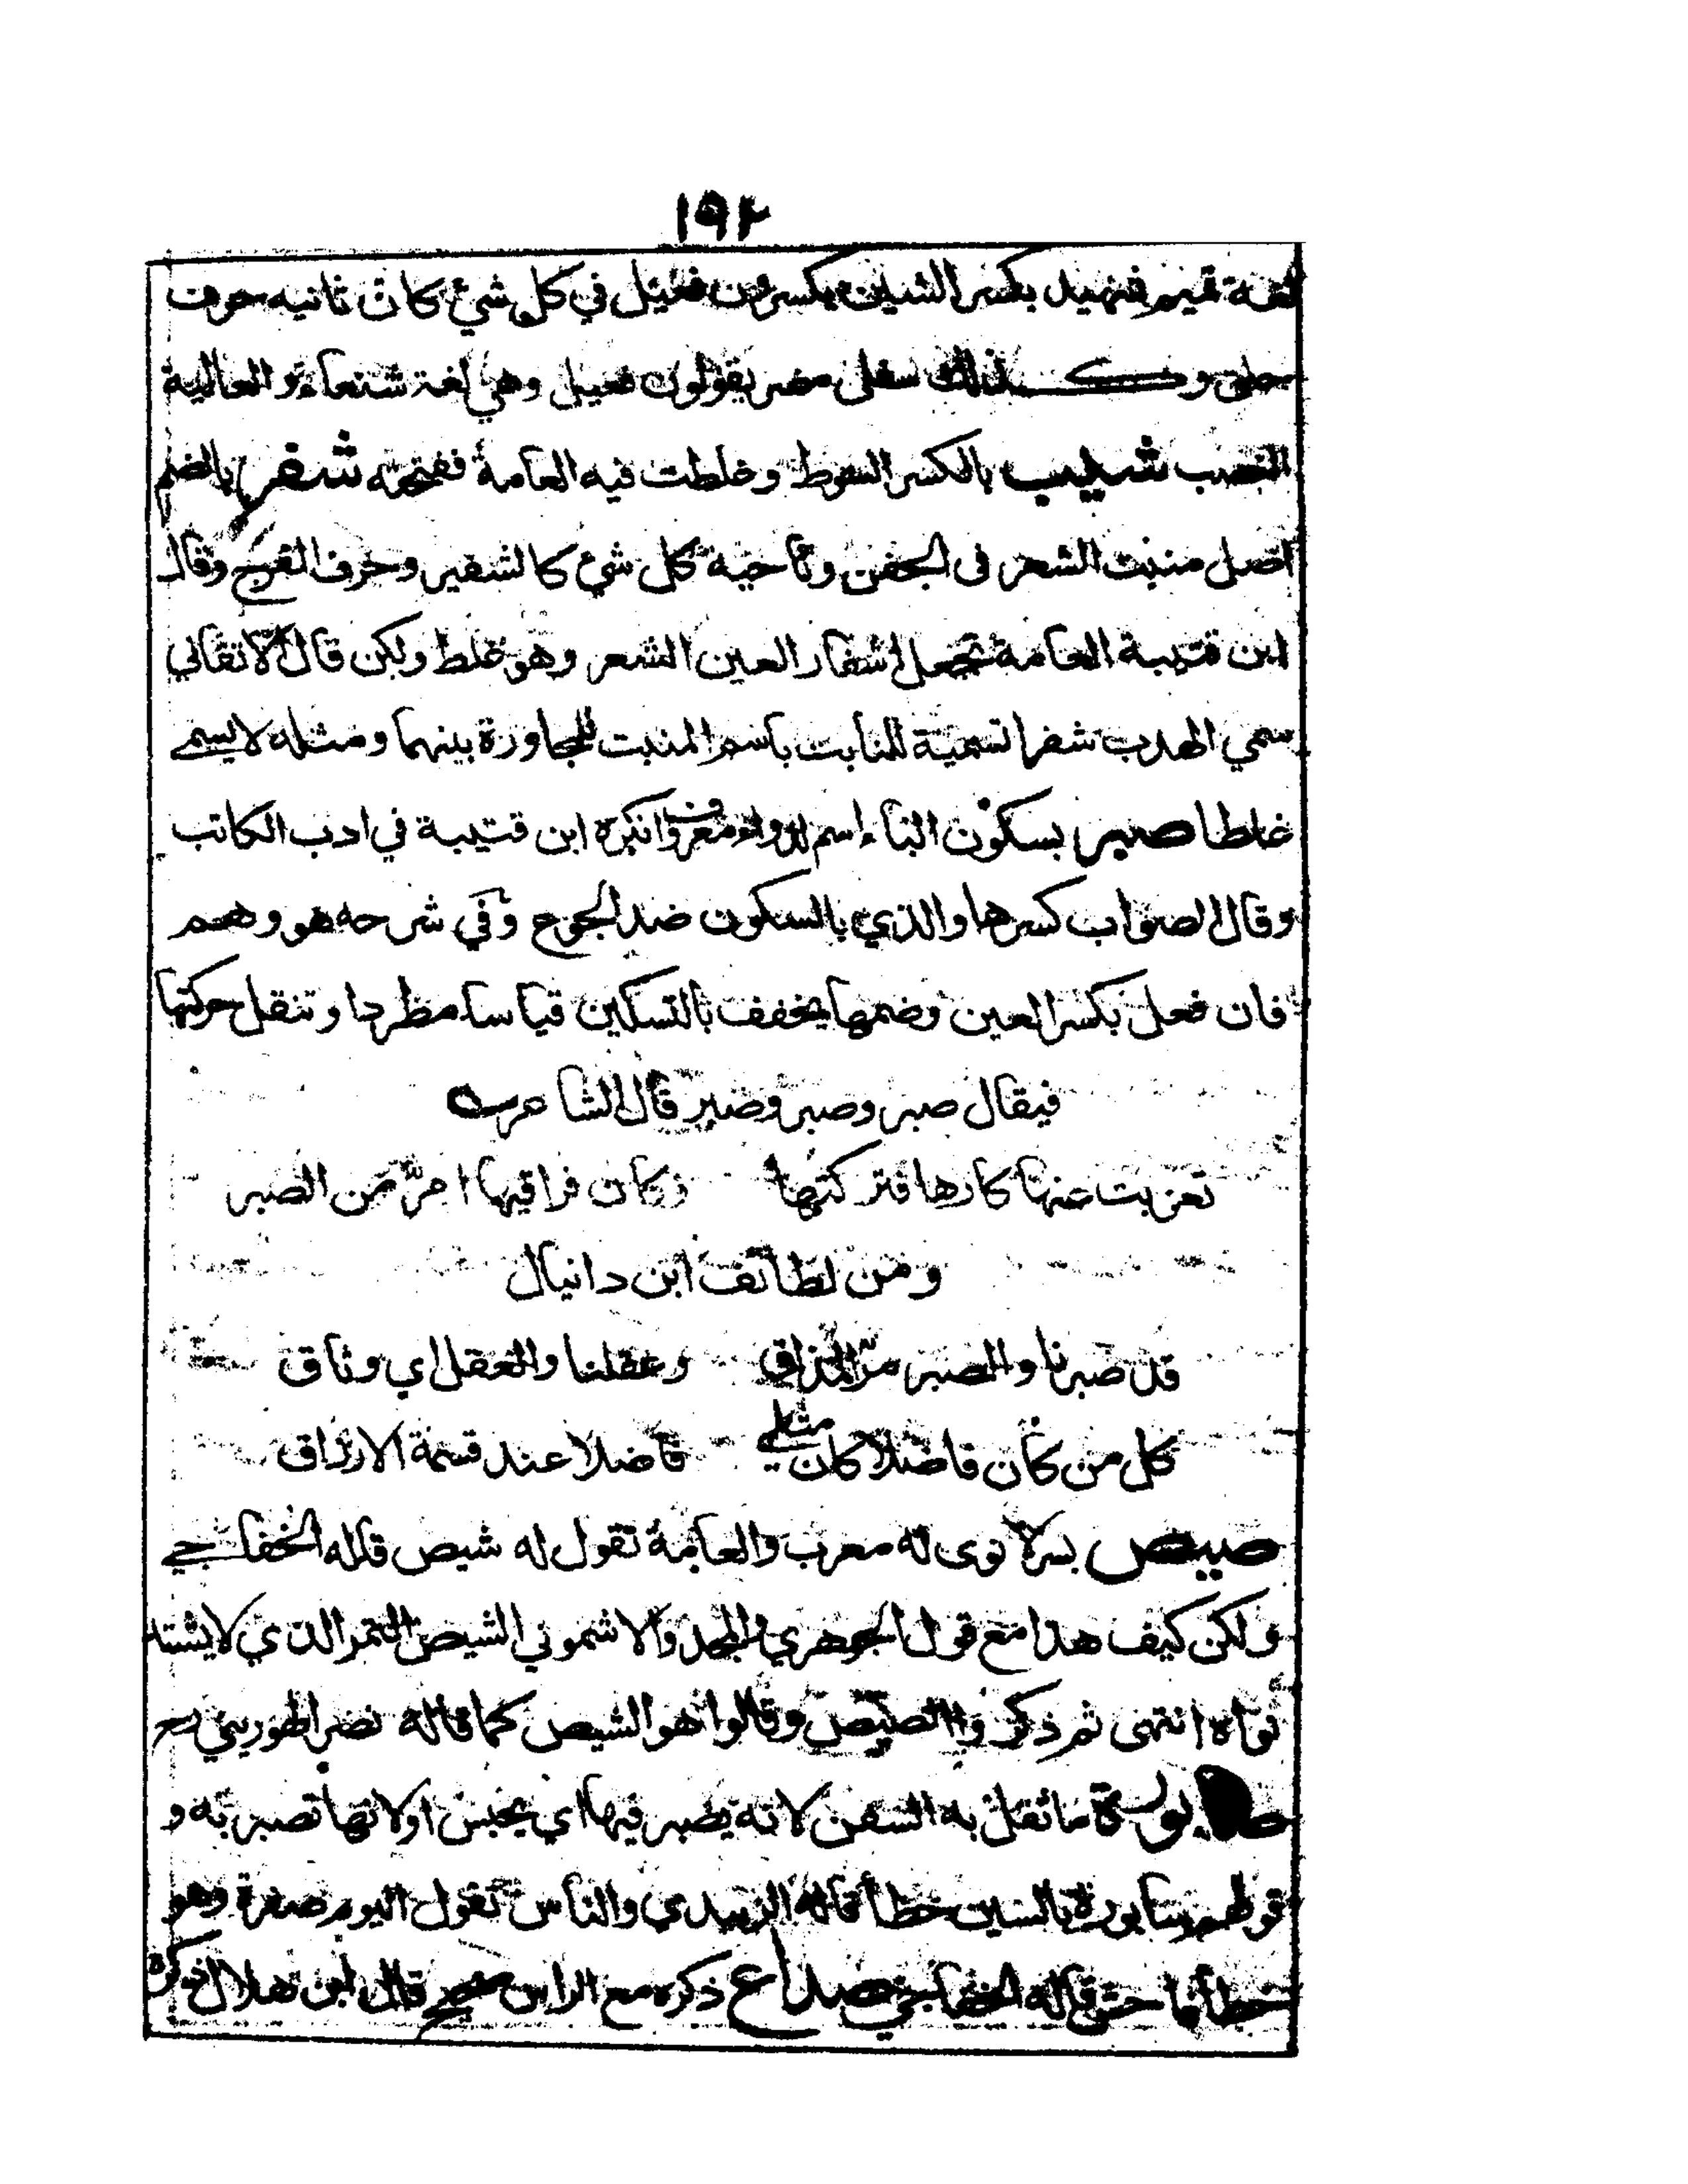 ١٩٢
لغة تميم شهيد بكسر الشين يكسرون فعيل في كل شيء كان ثانيه حرف
حلق وكذلك سفلى مضر يقولون فعيل وهي لغة شنعاء والعالية
النصب شليب بالكسر السوط وغلطت فيه العامة ففتحته شفر بالضم
اصل منبت الشعر فى الجفن وناحية كل شئ كالشفير وحرف الفرج وقال
ابن قتيبة العامة تجعل اشفار العين الشعر وهو غلط ولكن قال الاتقاني
سمي الهدب شفرا تسمية للنابت باسم المنبت للمجاورة بينهما ومثله لا يسمى
غلطا صبر بسكون الباء إسم لدواء معروف وانكره ابن قتيبة في ادب الكاتب
وقال الصواب كسرها والذي بالسكون ضد الجزع وفي شرحه هو وهم
فان فعل بكسر العين وضمها يخفف بالتسكين قياسا مطردا وتنقل حركتها
فيقال صبر وصبر وصبر قال الشاعر
تعزيت عنها كارها فتركتها وكان فراقيها امرّ من الصبر
ومن لطائف ابن دانيال
قد صبرنا والصبر مرّ المذاق وعقلنا والعقل اي وثاق
كل من كان فاضلا كان مثلي فاضلا عند قسمة الارزاق
صيص بسر لا نوى له معرب والعامة تقول له شيص قاله الخفاجي
ولكن كيف هذا مع قول الجوهري والمجد والاشموني الشيص التمر الذي لا يشتد
نواه انتهى ثم ذكروا الصيص وقالوا هو الشيص كما قاله نصر الهوريني رح
صابورة ما تثقل به السفن لانه يصبر فيها اي يحبس اولانها تصبر به و
قولهم سابورة بالسين خطأ قاله الزبيدي والناس تقول اليوم صغرة وهو
خطأ فاحش قاله الخفاجي صداع ذكره مع الراس قال ابن هلال ذكره